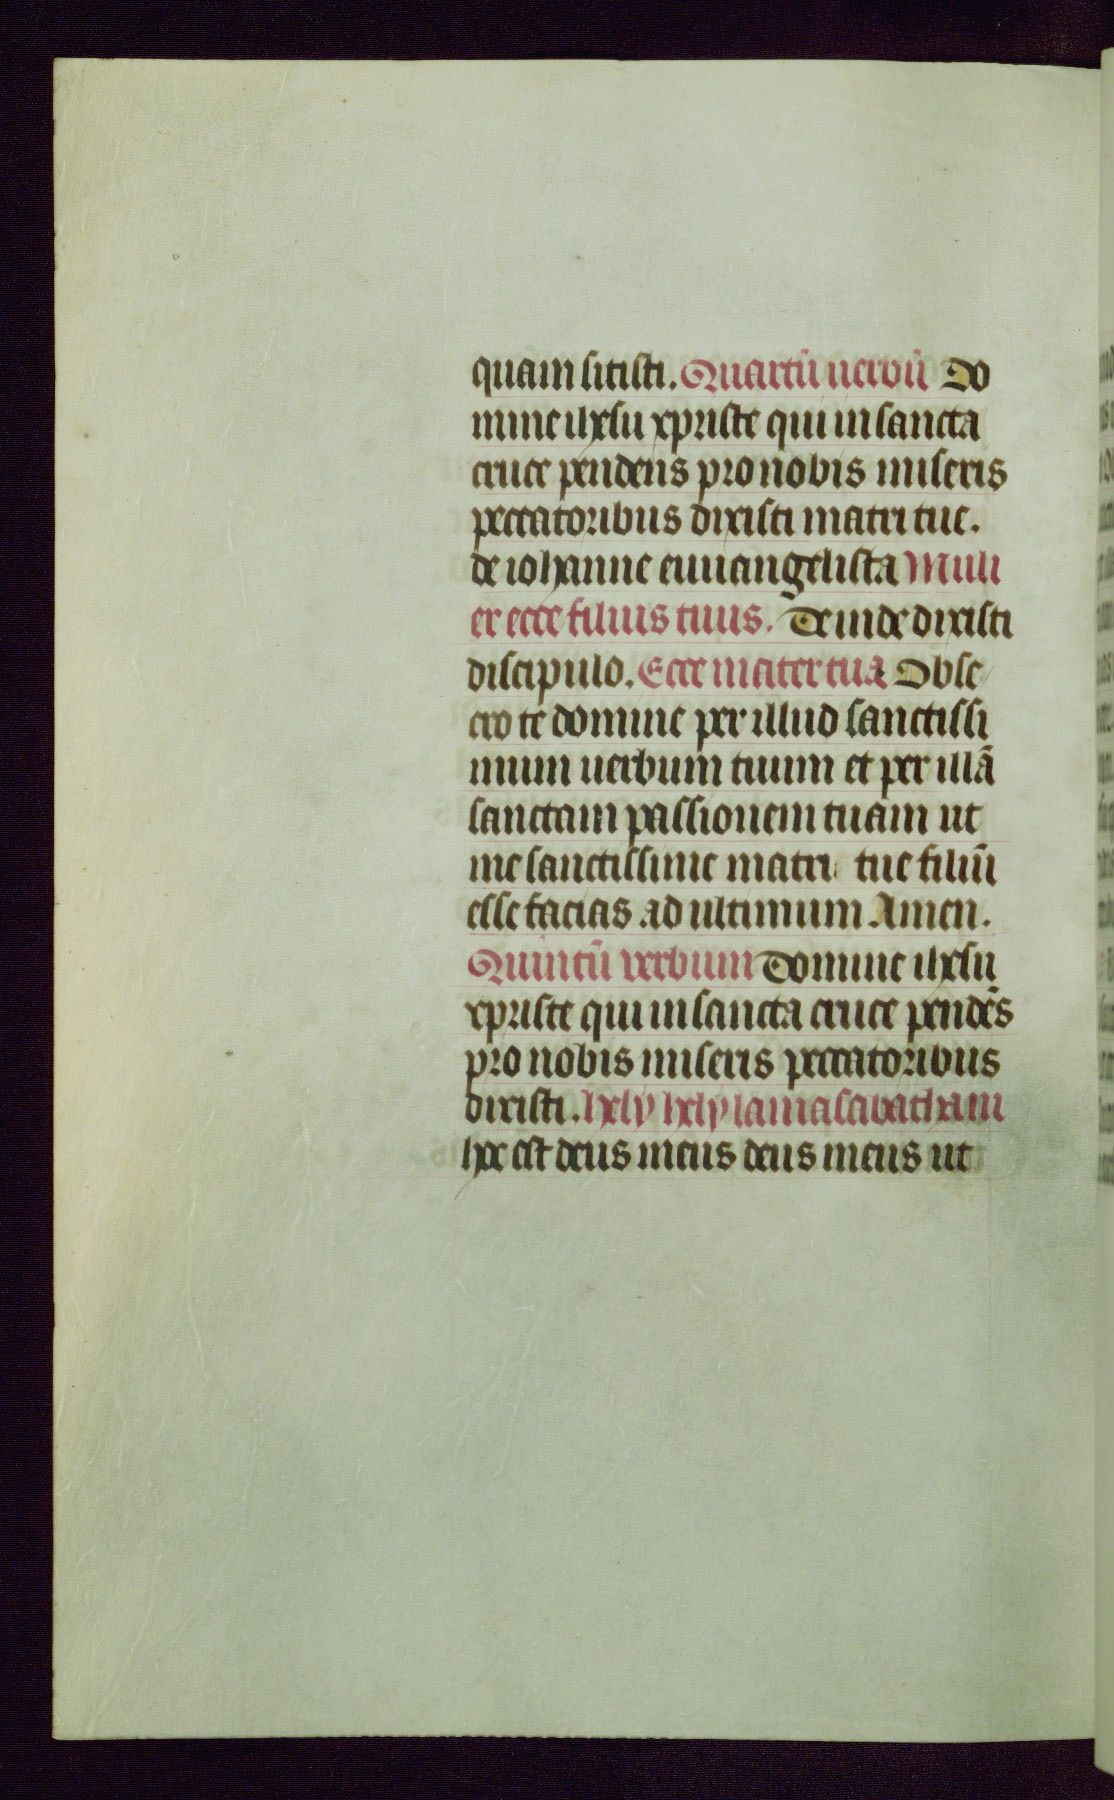 quam sitisti. Quartū uerbū Do
mine ihesu xpriste qui in sancta
cruce pendens pro nobis miseris
peccatoribus dixisti matri tue.
de iohanne euuangelista Muli
er ecce filius tuus. Deinde dixisti
discipulo. Ecce mater tua Obse
cro te domine per illud sanctissi
mum uerbum tuum et per illā
sanctam passionem tuam ut
me sanctissime matri tue filiū
esse facias ad ultimum Amen.
Quintū verbum Domine ihesu
xpriste qui in sancta cruce pendēs
pro nobis miseris peccatoribus
dixisti. hely hely lamasabatham
hoc est deus meus deus meus ut